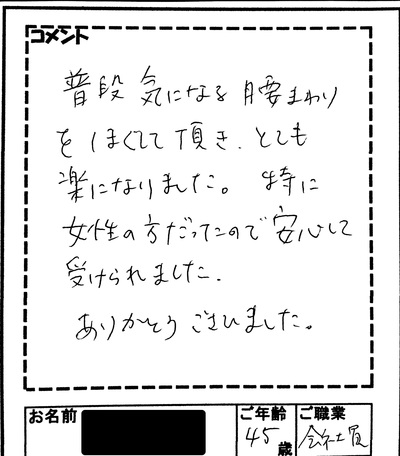 コメント
普段 気になる 腰まわり
を ほぐして 頂き、とても
楽になりました。 特に
女性の方だったので 安心して
受けられました.
ありがとう ございました。
お名前
ご年齢 ご職業
45歳 会社員